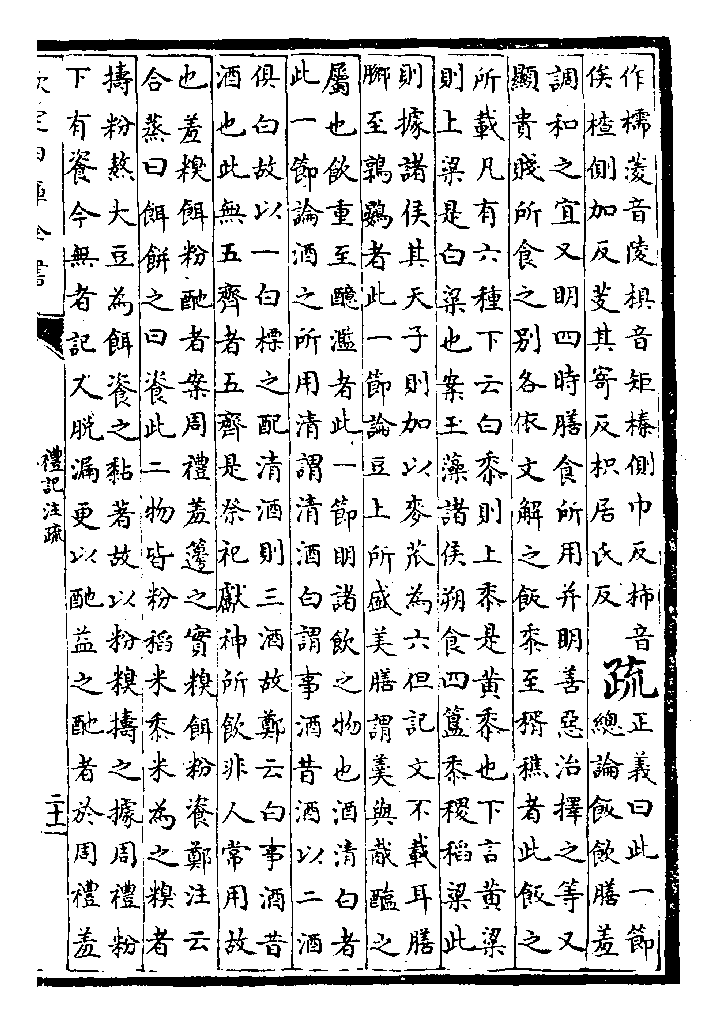 作檽蔆音陵椇音矩榛側巾反柿音
俟楂側加反芰其寄反枳居氏反
疏
正義曰此一節
緫論飯飲膳羞
調和之宜又明四時膳食所用并明善惡治擇之等又
顯貴賤所食之別各依文解之飯黍至稰穛者此飯之
所載凡有六種下云白黍則上黍是黃黍也下言黃粱
則上粱是白粱也案玉藻諸侯朔食四簋黍稷稻粱此
則據諸侯其天子則加以麥苽為六但記文不載耳膳
膷至鶉鷃者此一節論豆上所盛美膳謂羮與胾醢之
屬也飲重至醷濫者此一節明諸飲之物也酒清白者
此一節論酒之所用清謂清酒白謂事酒昔酒以二酒
俱白故以一白標之配清酒則三酒故鄭云白事酒昔
酒也此無五齊者五齊是祭祀獻神所飲非人常用故
也羞糗餌粉酏者案周禮羞籩之實糗餌粉餈鄭注云
合蒸曰餌餅之曰餈此二物皆粉稻米黍米為之糗者
擣粉熬大豆為餌餈之黏著故以粉糗擣之據周禮粉
下有餈今無者記人脫漏更以酏益之酏者於周禮羞
欽定四庫全書
禮記注疏